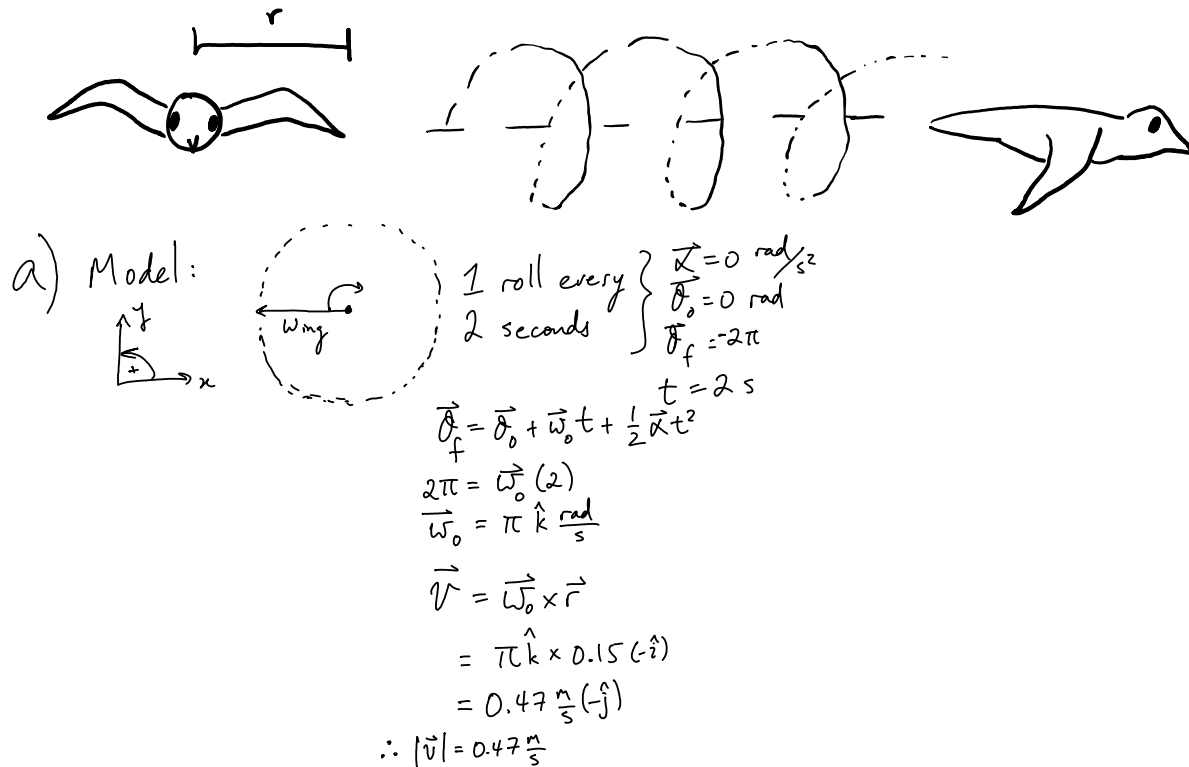 r
a) Model:
y
+
x
wing
1 roll every
2 seconds
α⃗ = 0 rad/s²
θ⃗₀ = 0 rad
θ⃗f = -2π
t = 2 s
θ⃗f = θ⃗₀ + ω⃗₀t + ½α⃗t²
2π = ω⃗₀ (2)
ω⃗₀ = π k̂ rad/s
v⃗ = ω⃗₀ × r⃗
= πk̂ × 0.15 (-î)
= 0.47 m/s (-ĵ)
∴ |v⃗| = 0.47 m/s